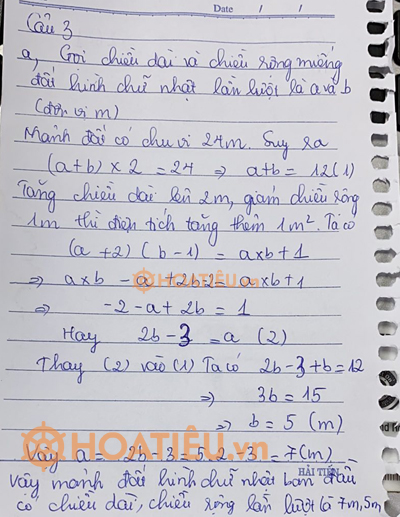 Date / /
Câu 3
a, Gọi chiều dài và chiều rộng miếng
đất hình chữ nhật lần lượt là a và b
(đơn vị m)
Mảnh đất có chu vi 24m. Suy ra
(a+b) × 2 = 24 ⇒ a+b = 12 (1)
Tăng chiều dài lên 2m, giảm chiều rộng
1m thì diện tích tăng thêm 1m². Ta có
(a+2) (b-1) = a×b+1
⇒ a×b - a + 2b-2 = a×b+1
HOATIEU.VN
⇒ -2-a+2b = 1
Hay 2b-3 = a (2)
Thay (2) vào (1) Ta có 2b-3+b=12
⇒ 3b = 15
⇒ b = 5 (m)
HOATIÊU.vn
Vậy a = 2b-3 = 5.2-3 = 7(m)
HẢI TIẾN
Vậy mảnh đất hình chữ nhật ban đầu
có chiều dài, chiều rộng lần lượt là 7m, 5m